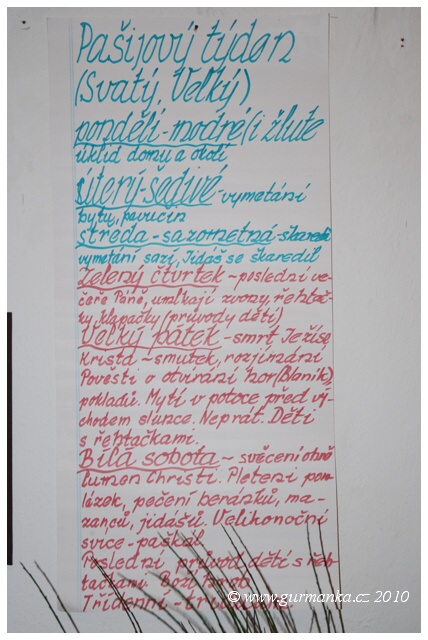 Pašijový týden
(Svatý, Velký)
pondělí - modré (i žluté
úklid domu a okolí
úterý - šedivé - vymetání
bytu, pavučin
středa - sazometná - škaredá
vymetání sazí, Jidáš se škaredil
Zelený čtvrtek ~ poslední ve-
čeře Páně, umlkají zvony, řehtač-
ky, klapačky (průvody dětí)
Velký pátek - smrt Ježíše
Krista ~ smutek, rozjímání
Pověsti o otvírání hor (Blaník),
pokladů. Mytí v potoce před vý-
chodem slunce. Neprat. Děti
s řehtačkami.
Bílá sobota ~ svěcení ohně
lumen Christi. Pletení pom-
lázek, pečení beránků, ma-
zanců, jidášů. Velikonoční
svíce - paškál
Poslední průvod dětí s řeh-
tačkami Boží hrob
Třídenní -
© www.gurmanka.cz 2010